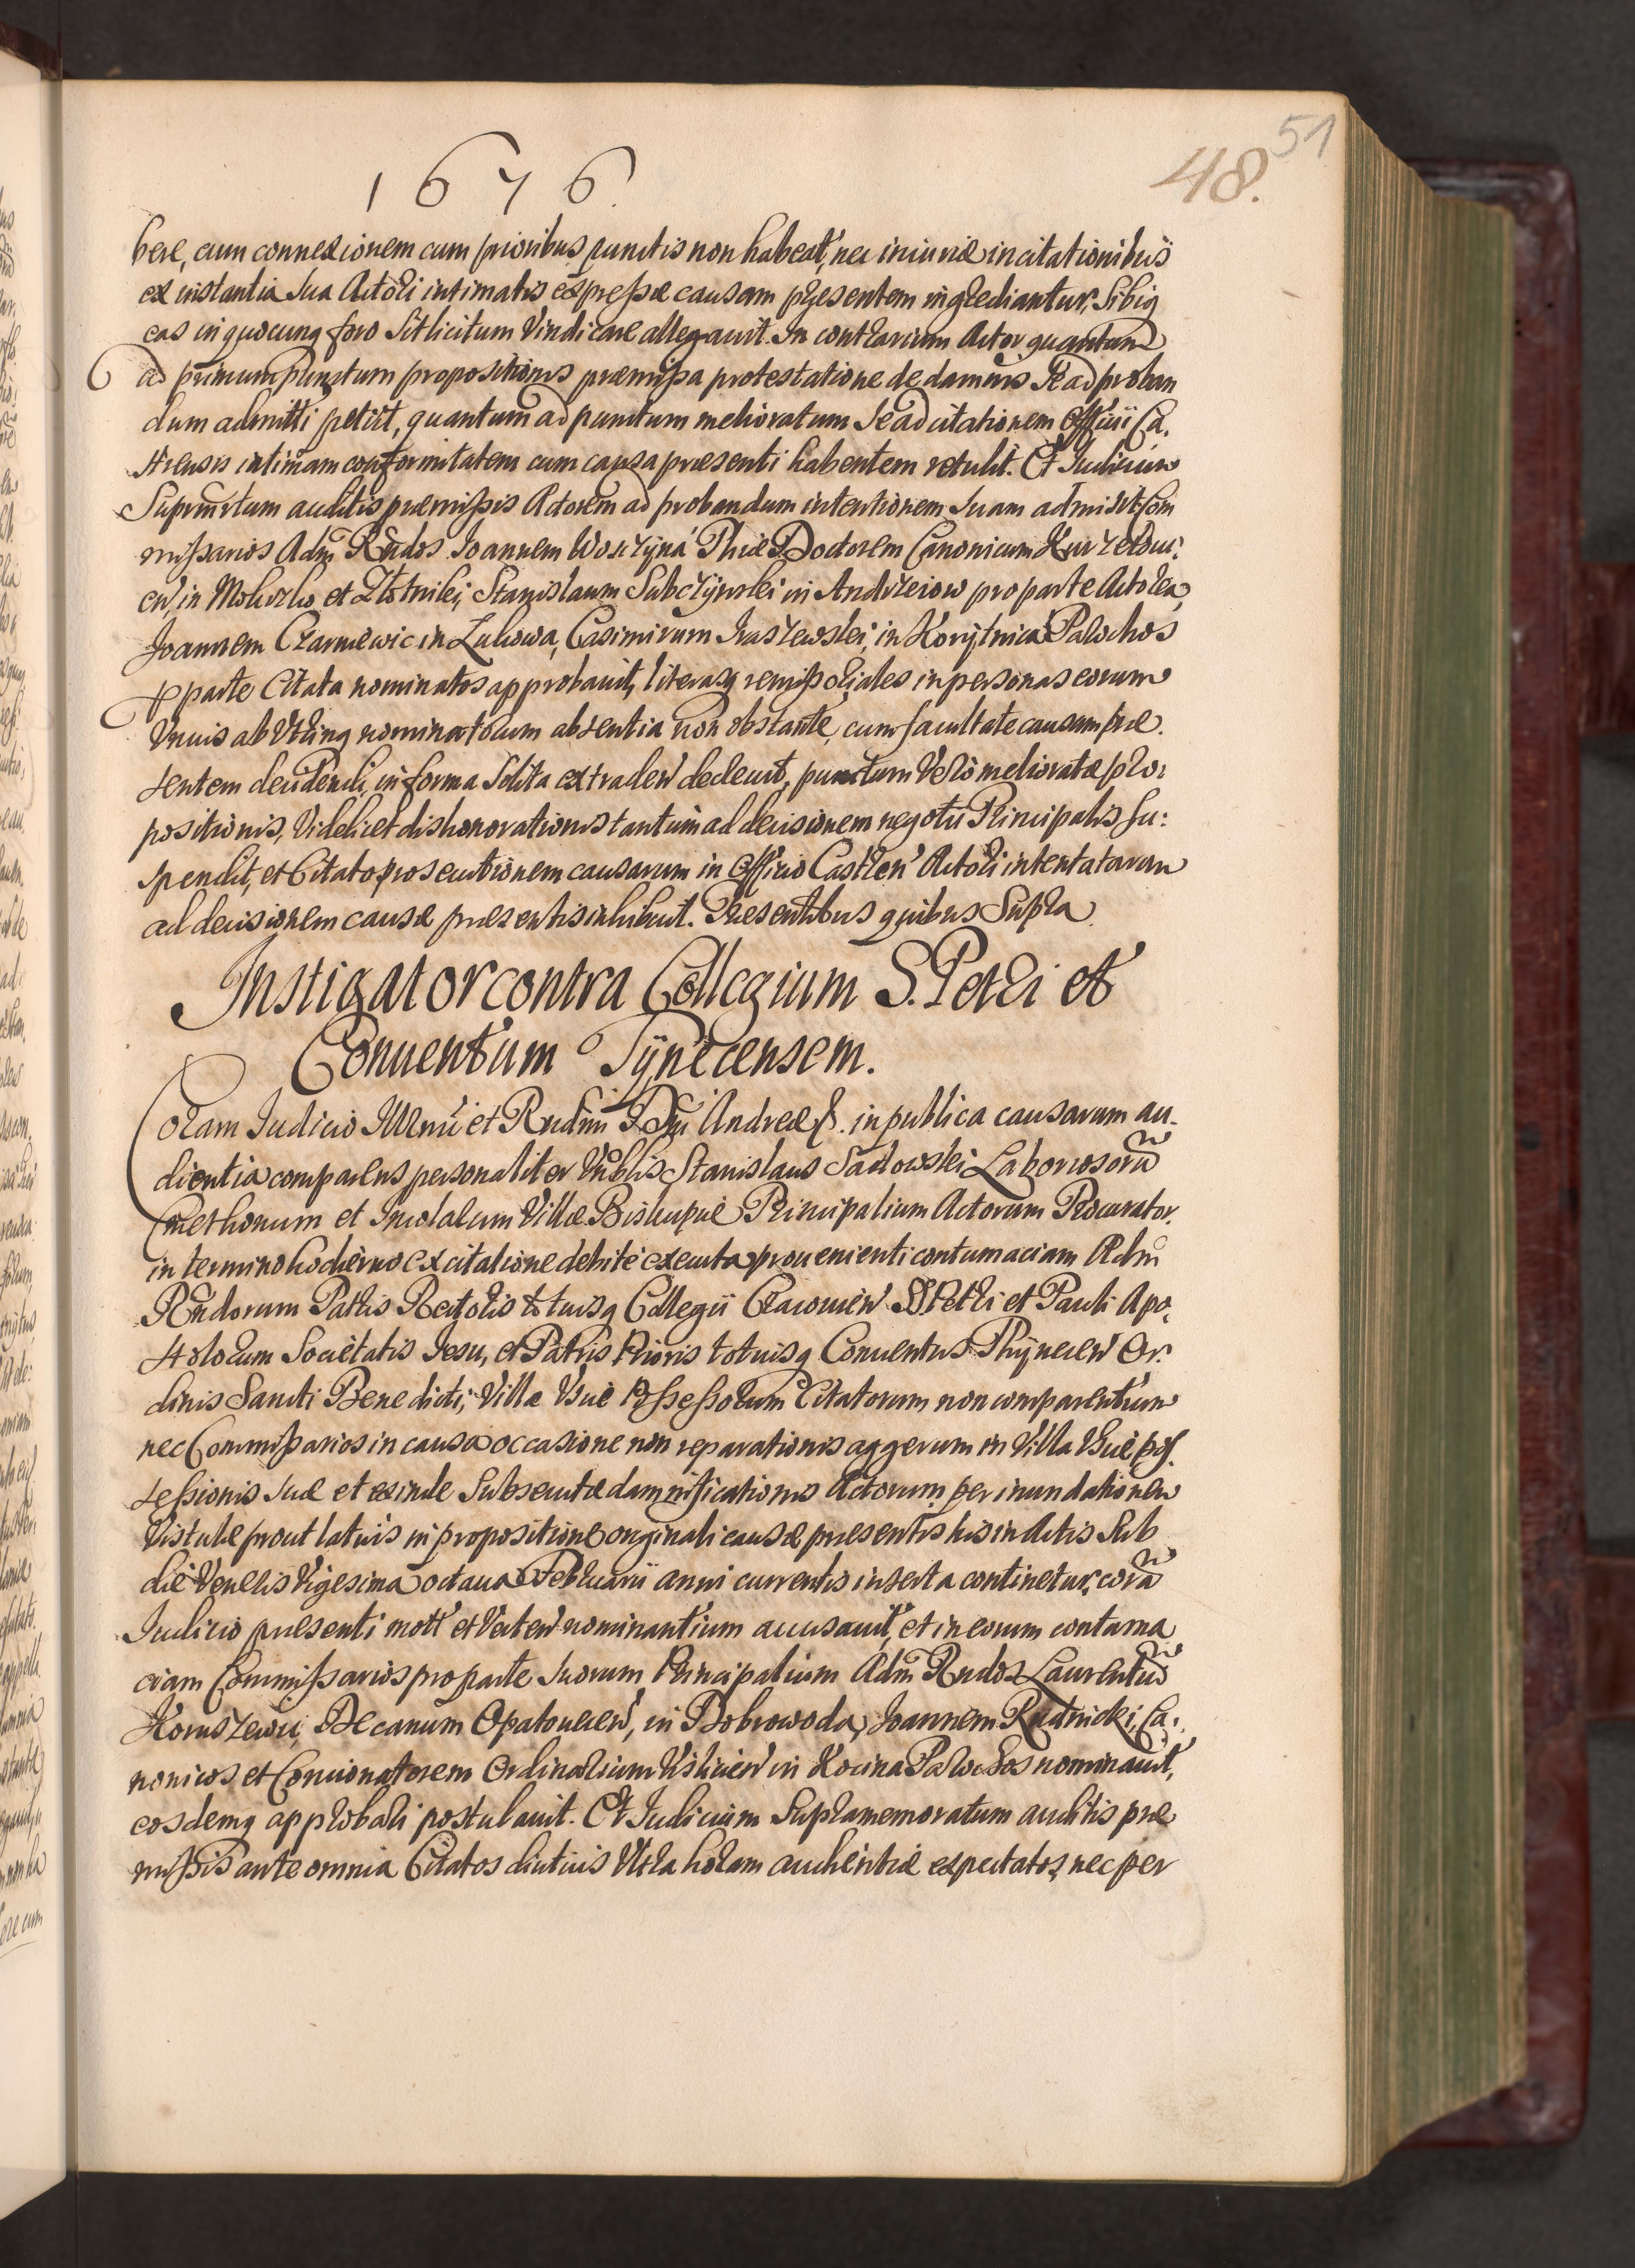 1676.
48.
51
bere, cum connexionem cum prioribus punctis non habeat, nec iniuriæ in citationibus
ex instantia sua Actori intimatis expressæ causam præsentem ingrediantur, sibiq
eas in quocunq foro sit licitum vindicare allegavit. In contrarium Actor quantum
ad primum punctum propositionis præmissa protestatione de damnis se ad proban
dum admitti petiit, quantum ad punctum melioratum se ad citationem Officii Ca:
strensis intimam conformitatem cum causa præsenti habentem retulit. Et Iudicium
Supmrtum auditis præmissis Actorem ad probandum intentionem suam admisit Com
missarios Adm Rndos Joannem Woszczyna Phiæ Doctorem Canonicum Kurzelovi:
en, in Mokrsko et Zlotniki, Stanislaum Subczynski in Andrzeiow pro parte Actorea,
Joannem Czarniewic in Lukowa, Casimirum Iraszewski, in Korytnica Parochos
p parte Citata nominatos approbavit, literasq remissoriales in personas eorum
Unius ab Utrinq nominatorum absentia non obstante, cum facultate causam præ.
sentem decidendi, in forma solita extraden decrevit, punctum vero melioratæ pro:
positionis, videlicet dishonorationis tantum ad decisionem negotii Principalis su:
spendit, et Citato prosecutionem causarum in Officio Castren Actori intentatarum
ad decisionem causæ præsentis inhibuit. Præsentibus quibus Supra
Instigator contra Collegium S. Petri et
Conventum Tynecensem.
Coram Iudicio Illmi et Rndmi D. Dni Andreæ &. in publica causarum au.
dientia comparens personaliter Nblis Stanislaus Sadowski Laboriosorū
Cmethonum et Incolarum Villæ Biskupie Principalium Actorum Procurator.
in termino hodierno ex citatione debite executa provenienti contumaciam Adm
Rndorum Patris Rectoris totiusq Collegii Cracovien SS Petri et Pauli Apo:
stolorum Societatis Jesu, et Patris Prioris totiusq Conventus Thynecen Or:
dinis Sancti Benedicti, Villæ Usuie Possessorum Citatorum non comparentium
nec Commissarios in causa occasione non reparationis aggerum in Villa Usuie pos
sessionis suæ et exinde subsecutæ damnificationis Actorum per inundationem
Vistulæ prout latius in propositione originali causæ præsentis his in Actis sub
die Veneris Vigesima octava Februarii anni currentis inserta continetur, corā
Iudicio præsenti mott et Verten nominantium accusavit, et in eorum contuma
ciam Commissarios pro parte suorum Principalium Adm Rndos Laurentiū
Koruszewic, Decanum Opatovecen, in Dobrowoda, Joannem Rudnicki, Ca:
nonicos, et Concionatorem Ordinarium Vislicien in Kocina Parochos nominavit,
eosdemq approbari postulavit. Et Iudicium Supramemoratum auditis præ
missis ante omnia Citatos diutius Ultra horam audientiæ expectatos, nec per